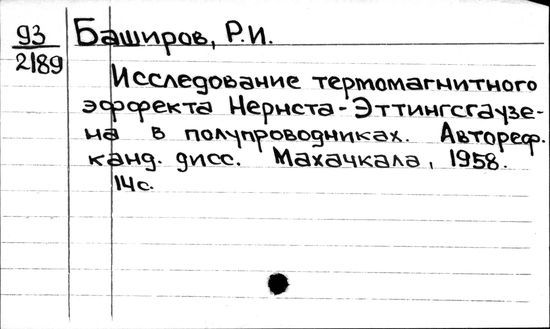 93
2189
Баширов, Р.И.
Исследование термомагнитного
эффекта Нернста-Эттингсгаузе-
на в полупроводниках. Автореф.
канд. дисс. Махачкала, 1958.
14с.